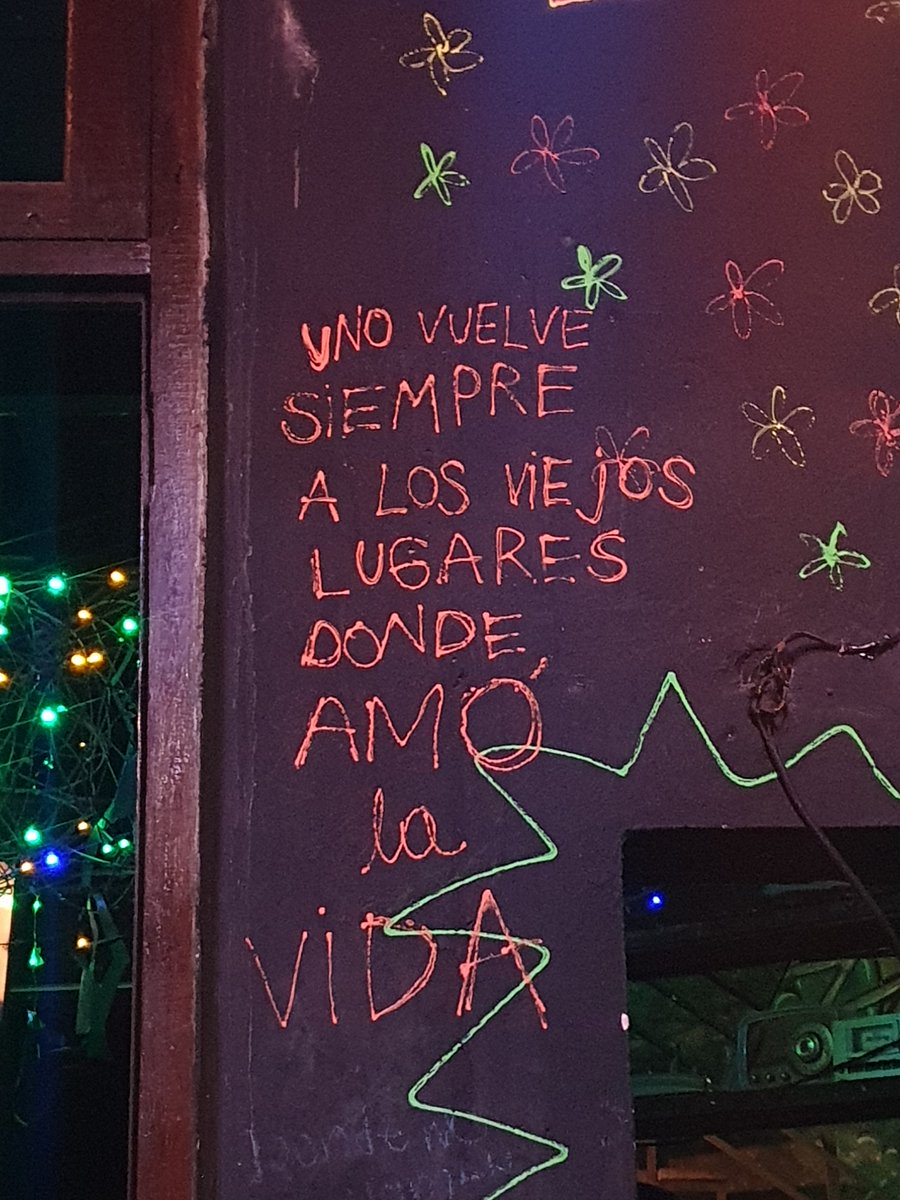 UNO VUELVE
SiEMPRE
A LOS ViEJOS
LUGARES
DONDE
AMÓ
la
ViDA